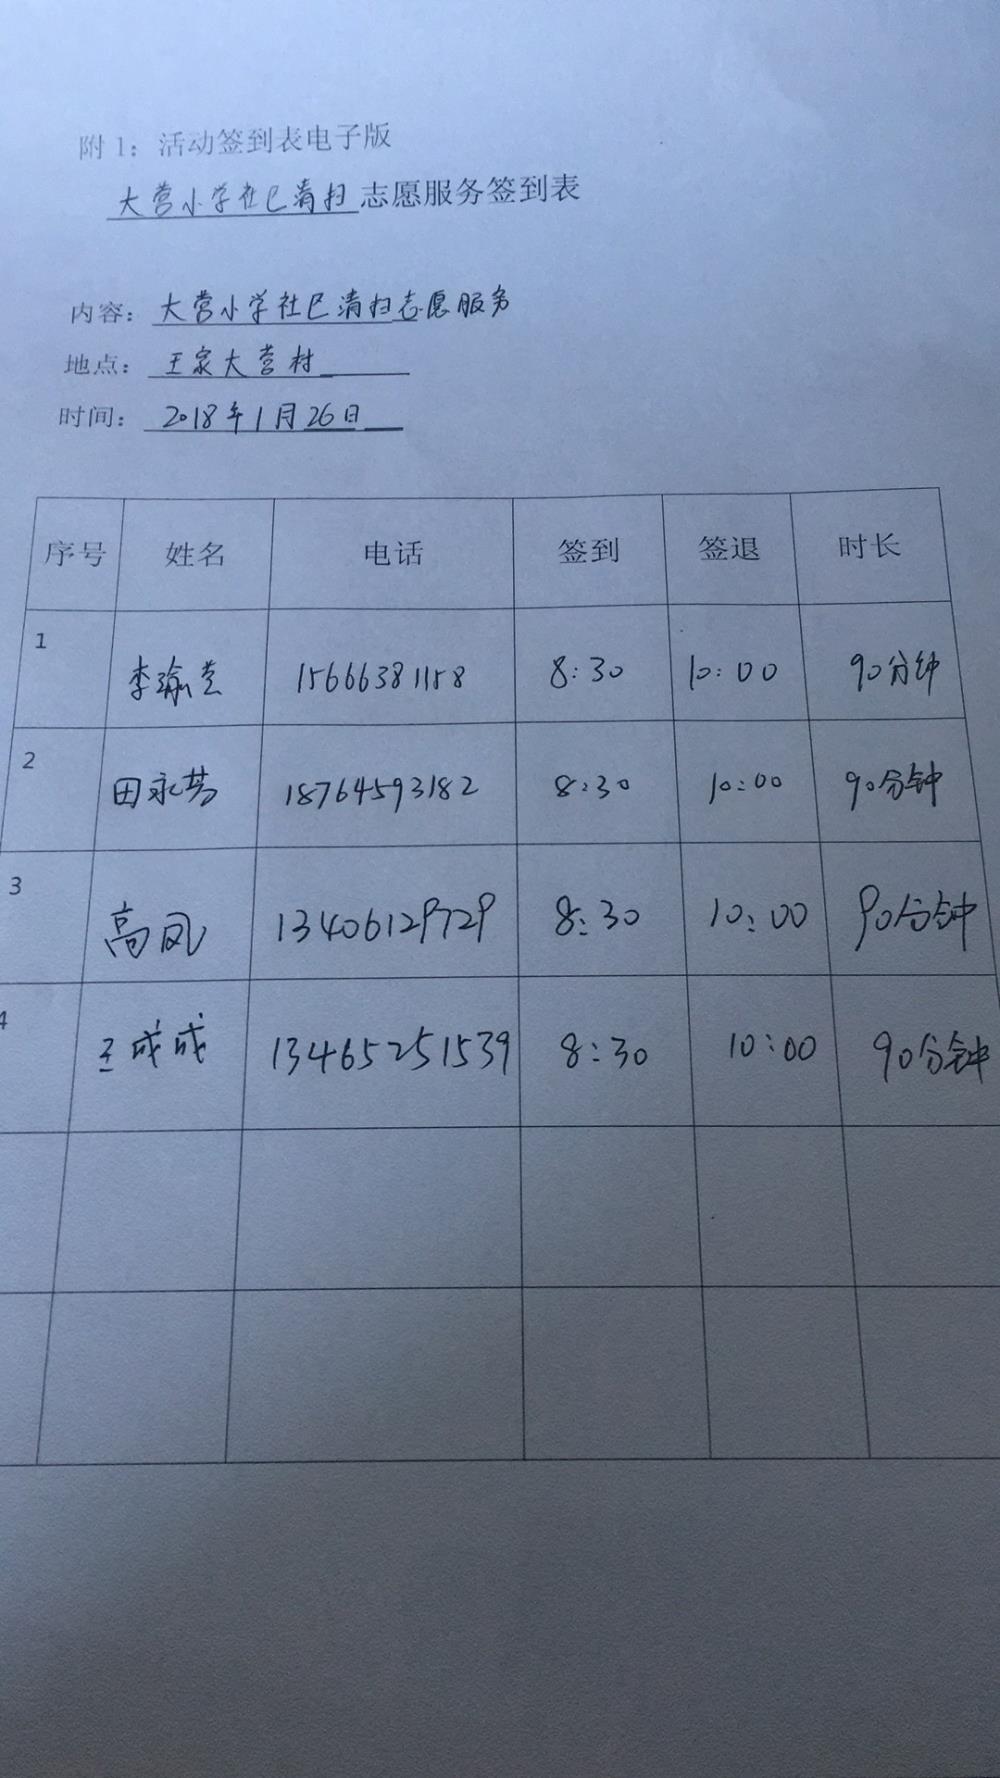 附1：活动签到表电子版
大营小学社区清扫志愿服务签到表
内容：大营小学社区清扫志愿服务
地点：王家大营村
时间：2018年1月26日
序号 姓名 电话 签到 签退 时长
1 李瑜芸 15666381158 8:30 10:00 90分钟
2 田永芬 18764593182 8:30 10:00 90分钟
3 高凤 13406129729 8:30 10:00 90分钟
4 王成成 13465251539 8:30 10:00 90分钟